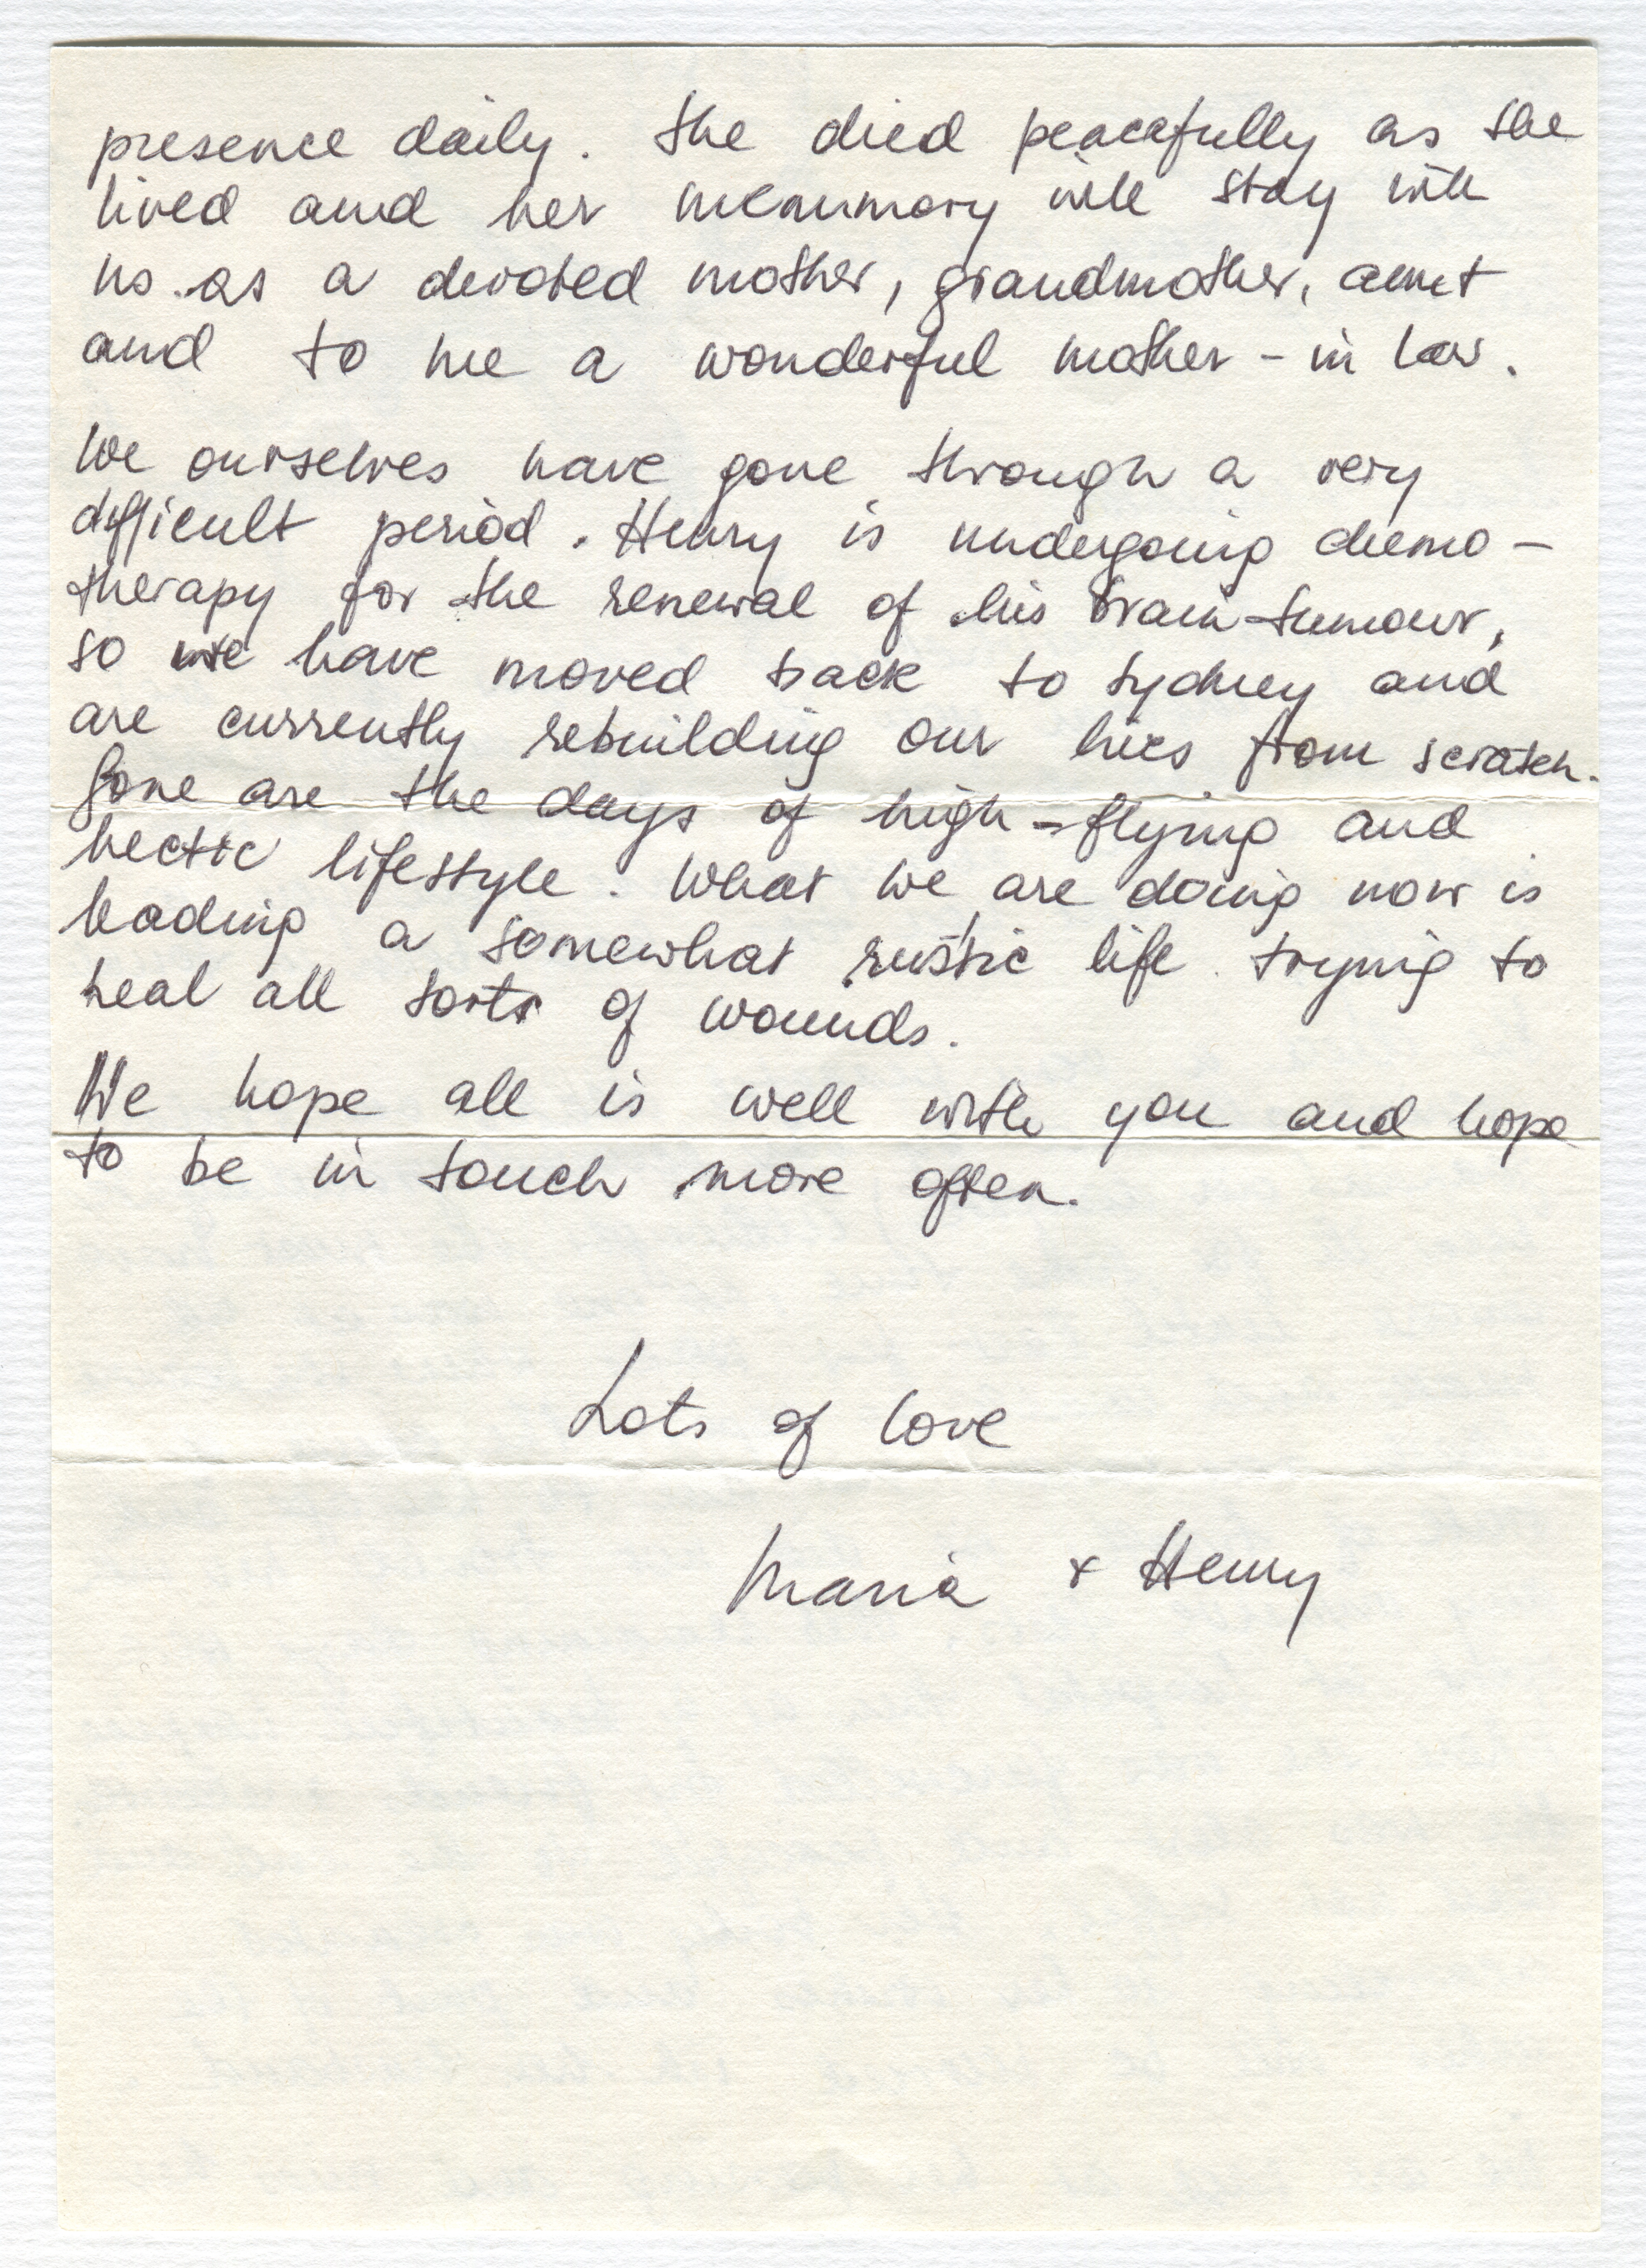 presence daily. She died peacefully as she
lived and her memmory will stay with
us as a devoted mother, grandmother, aunt
and to me a wonderful mother-in law.
We ourselves have gone through a very
difficult period. Henry is undergoing chemo-
therapy for the renewal of his brain-tumour,
so we have moved back to Sydney and
are currently rebuilding our lives from scratch.
Gone are the days of high-flying and
hectic lifestyle. What we are doing now is
leading a somewhat rustic life trying to
heal all sorts of wounds.
We hope all is well with you and hope
to be in touch more often.
Lots of love
Maria & Henry